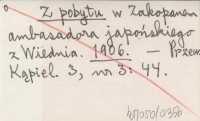 Z pobytu w Zakopanem
ambasadora japońskiego
z Wiednia. 1906. — Przem.
Kąpiel. 3, nr 3: 44.